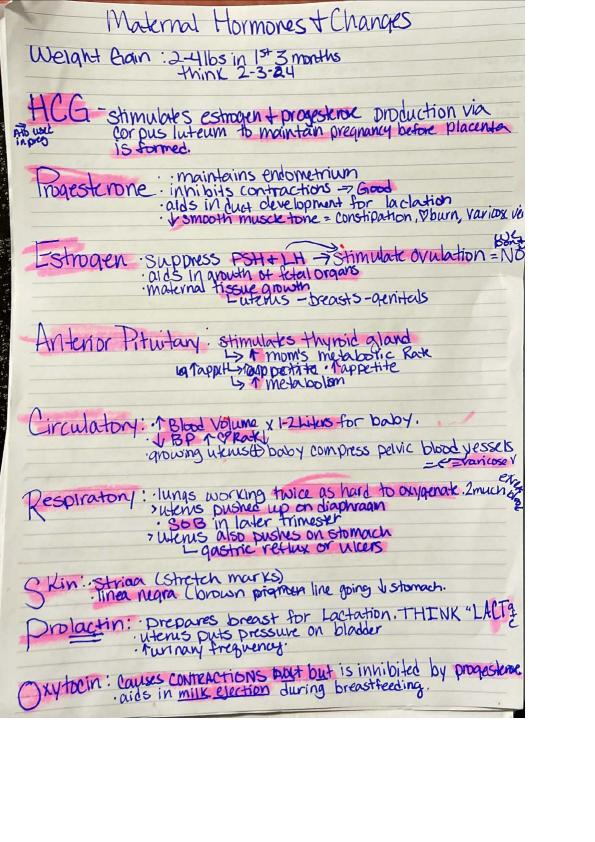 Maternal Hormones & Changes
Weight Gain : 2-4lbs in 1st 3 months
think 2-3-24
HCG - stimulates estrogen + progesterone production via
corpus luteum to maintain pregnancy before placenta
is formed.
in preg
Progesterone · maintains endometrium
· inhibits contractions → Good
· aids in duct development for lactation
· ↓ smooth muscle tone = constipation, ♡burn, varicox vei
Estrogen · Suppress FSH + LH → Stimulate ovulation = NO
· aids in growth of fetal organs
· maternal tissue growth
uterus - breasts - genitals
Anterior Pituitary : stimulates thyroid gland
↳ ↑ mom's metabolic Rate
↑appetite
↳ ↑ metabolism
Circulatory: · ↑ Blood Volume x 1-2 Liters for baby.
· ↓ BP ↑ ♡ Rate↓
· growing uterus ⊕ baby compress pelvic blood vessels
= varicose V
Respiratory: · lungs working twice as hard to oxygenate. 2much
> uterus pushed up on diaphragm
· SOB in later trimester
> uterus also pushes on stomach
gastric reflux or ulcers
Skin: · Striaa (stretch marks)
· linea negra (brown line going ↓ stomach.
Prolactin: · Prepares breast for Lactation. THINK "LACT
· uterus puts pressure on bladder
· ↑ urinary frequency.
Oxytocin: causes CONTRACTIONS but is inhibited by progesterone
· aids in milk ejection during breastfeeding.